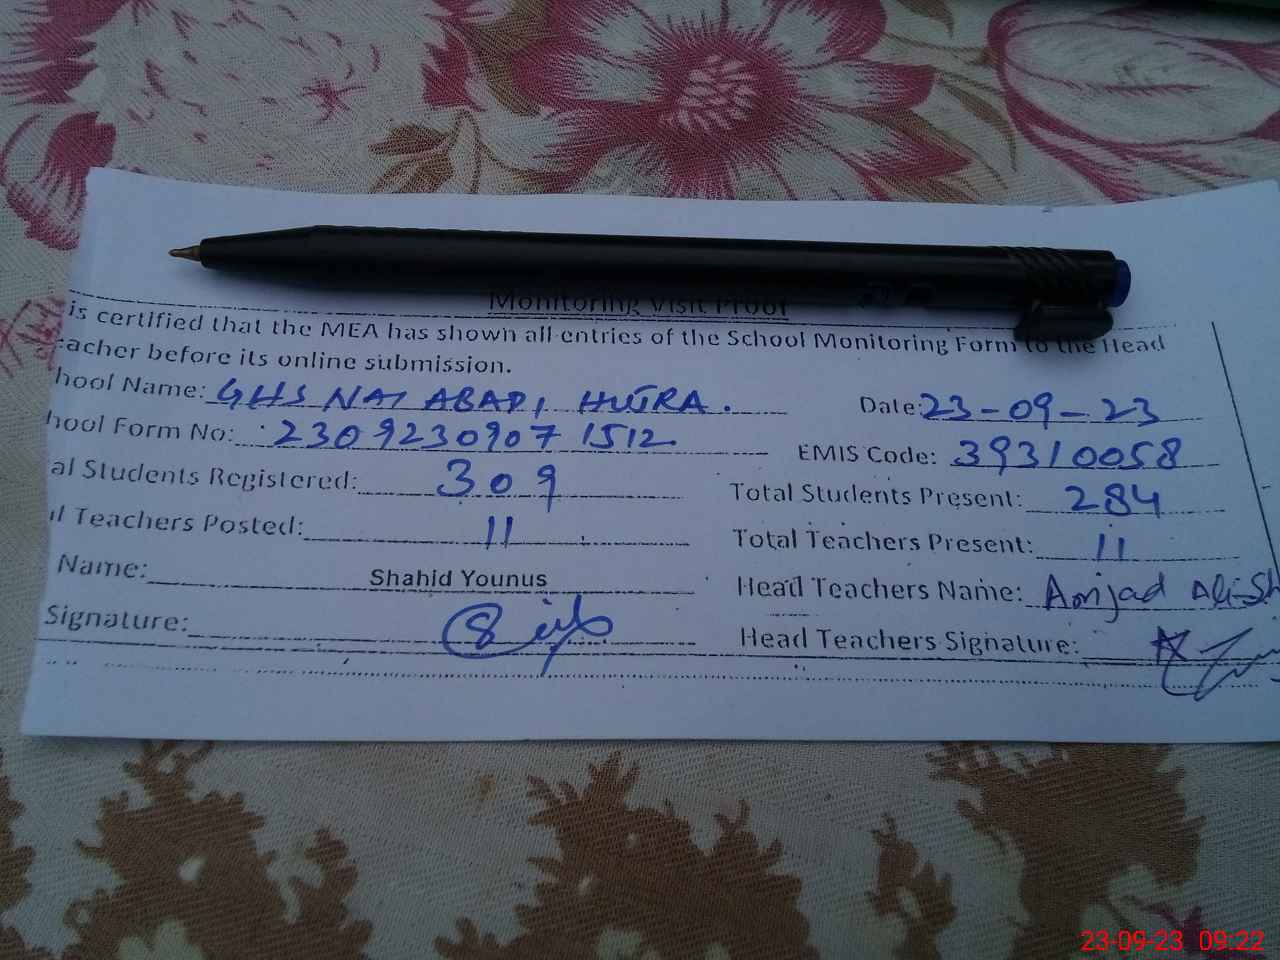 Monitoring Visit Proof
is certified that the MEA has shown all entries of the School Monitoring Form to the Head
eacher before its online submission.
hool Name: GHS NAI ABADI, HUJRA. Date: 23-09-23
hool Form No: 2309230907 1512 EMIS Code: 39310058
al Students Registered: 309 Total Students Present: 284
l Teachers Posted: 11 Total Teachers Present: 11
Name: Shahid Younus Head Teachers Name: Amjad Ali Sh
Signature: Head Teachers Signature:
23-09-23 09:22